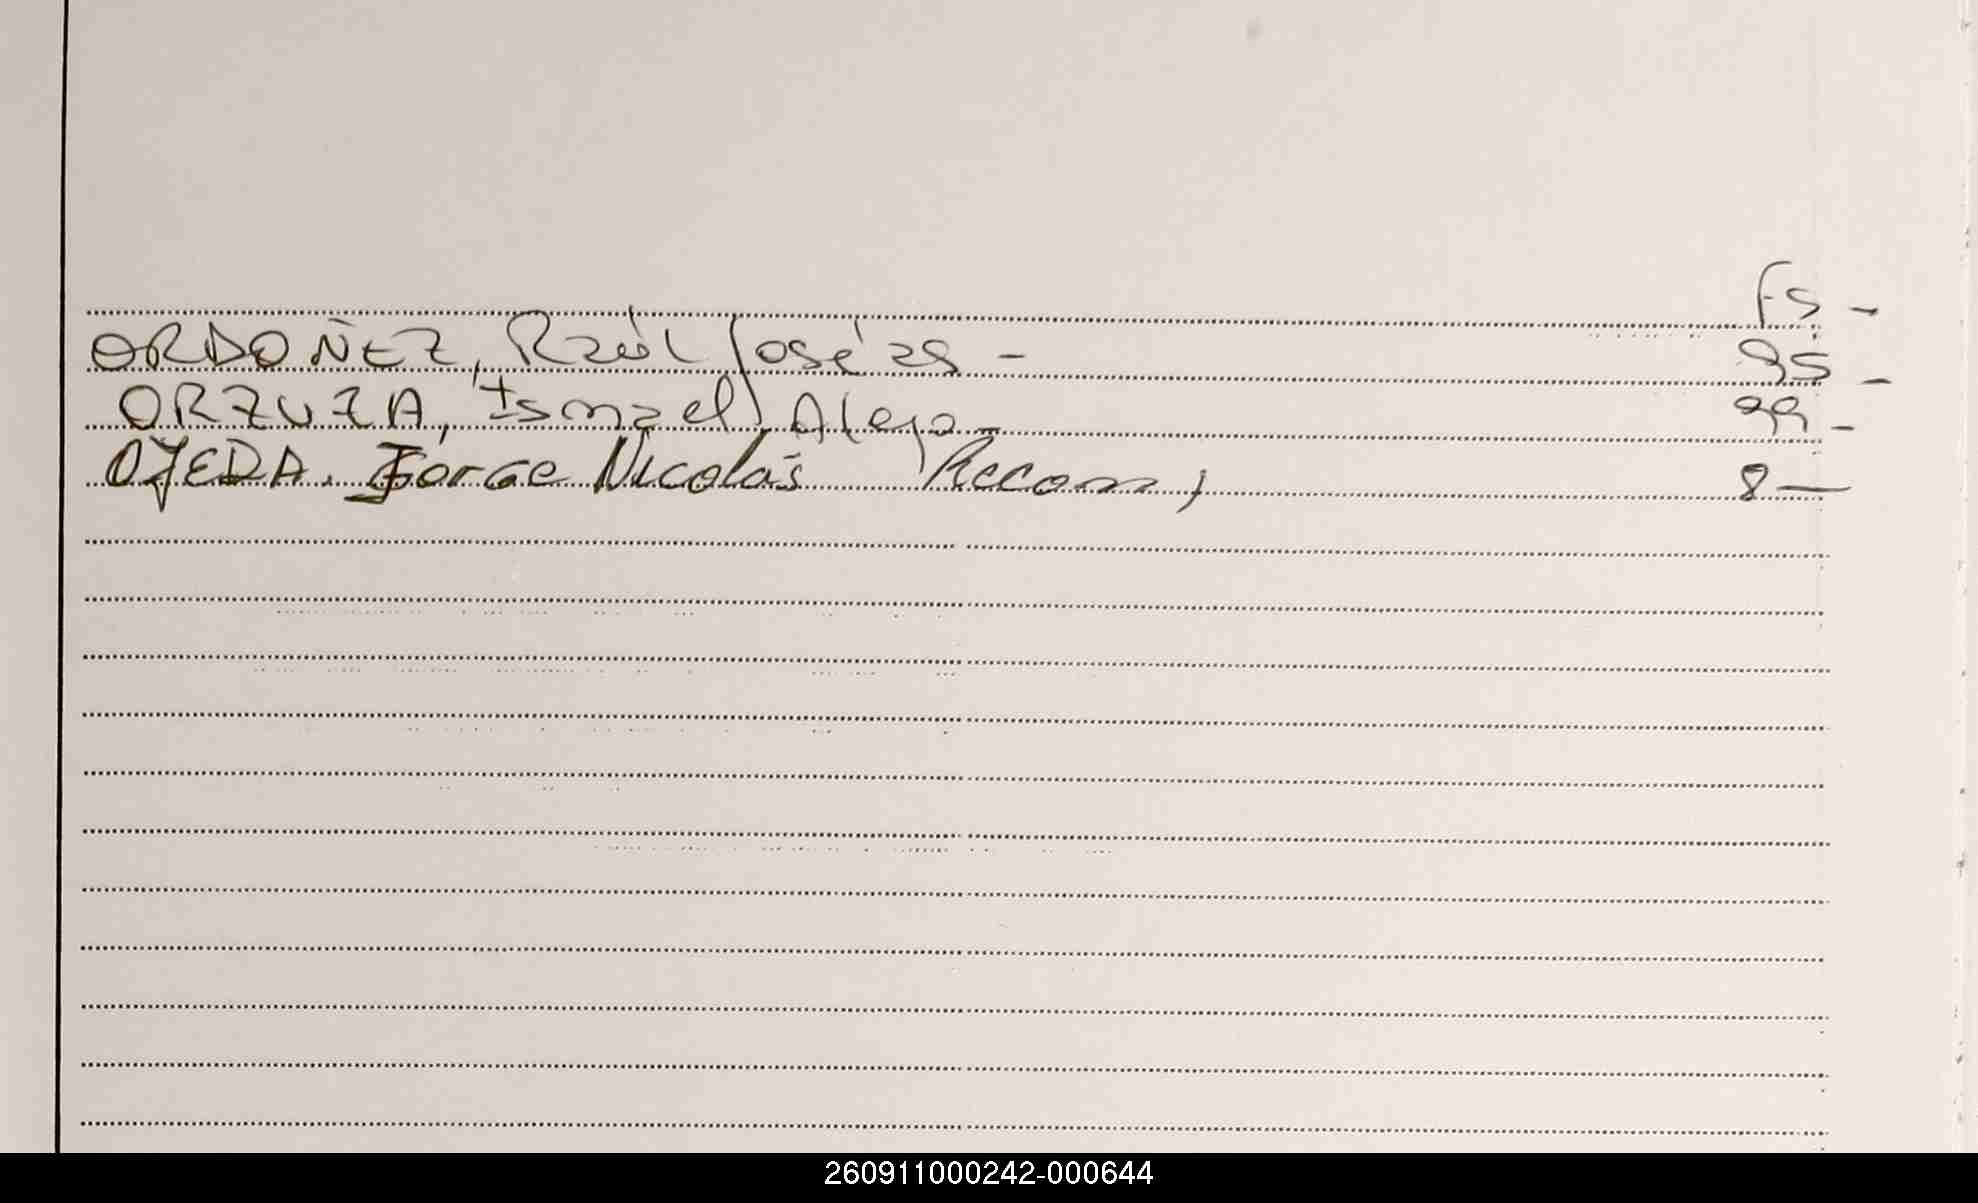 fs -
ORDOÑEZ, Raúl José 28 - 95 -
ORZUZA, Ismael Alejo - 99 -
OJEDA. Jorge Nicolás Recon, 8 -
260911000242-000644